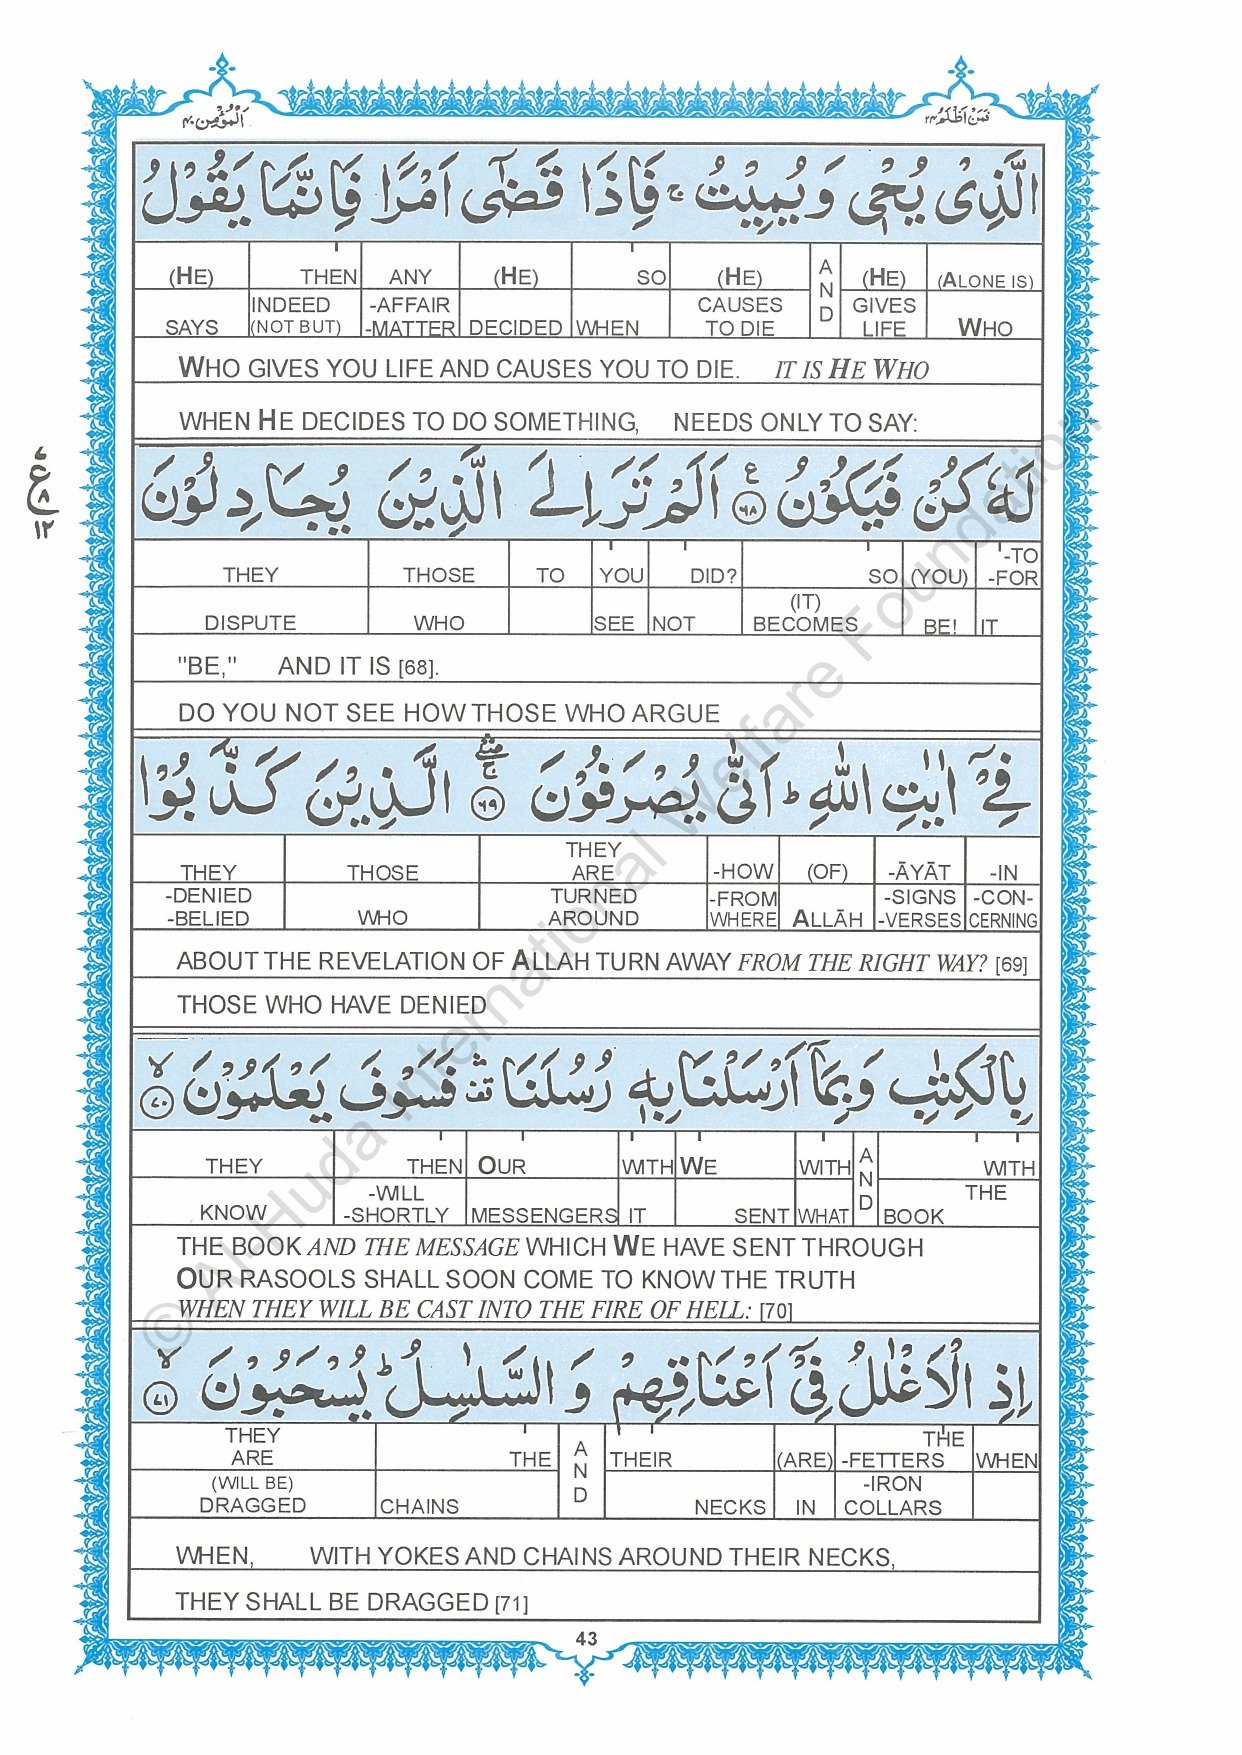 اَلْمُؤْمِن ۴۰
فَمَنْ اَظْلَمُ ۲۴
الَّذِیْ یُحْیٖ وَ یُمِیْتُ ۚ فَاِذَا قَضٰۤی اَمْرًا فَاِنَّمَا یَقُوْلُ
(HE) THEN ANY (HE) SO (HE) AND (HE) (ALONE IS)
SAYS INDEED (NOT BUT) -AFFAIR -MATTER DECIDED WHEN CAUSES TO DIE GIVES LIFE WHO
WHO GIVES YOU LIFE AND CAUSES YOU TO DIE. IT IS HE WHO
WHEN HE DECIDES TO DO SOMETHING, NEEDS ONLY TO SAY:
لَهٗ كُنْ فَیَكُوْنُ ۠ ﴿۶۸﴾ اَلَمْ تَرَ اِلَی الَّذِیْنَ یُجَادِلُوْنَ
ع ۸ ۱۲
THEY THOSE TO YOU DID? SO (YOU) -TO -FOR
DISPUTE WHO SEE NOT (IT) BECOMES BE! IT
"BE," AND IT IS [68].
DO YOU NOT SEE HOW THOSE WHO ARGUE
فِیْۤ اٰیٰتِ اللّٰهِ ؕ اَنّٰی یُصْرَفُوْنَ ﴿۶۹﴾ ۚۛ الَّذِیْنَ كَذَّبُوْا
THEY THOSE THEY ARE -HOW (OF) -ĀYĀT -IN
-DENIED -BELIED WHO TURNED AROUND -FROM WHERE ALLĀH -SIGNS -VERSES -CON- CERNING
ABOUT THE REVELATION OF ALLAH TURN AWAY FROM THE RIGHT WAY? [69]
THOSE WHO HAVE DENIED
بِالْكِتٰبِ وَ بِمَاۤ اَرْسَلْنَا بِهٖ رُسُلَنَا ۛ۫ فَسَوْفَ یَعْلَمُوْنَ ۙ ﴿۷۰﴾
THEY THEN OUR WITH WE WITH AND WITH
KNOW -WILL -SHORTLY MESSENGERS IT SENT WHAT THE BOOK
THE BOOK AND THE MESSAGE WHICH WE HAVE SENT THROUGH
OUR RASOOLS SHALL SOON COME TO KNOW THE TRUTH
WHEN THEY WILL BE CAST INTO THE FIRE OF HELL: [70]
اِذِ الْاَغْلٰلُ فِیْۤ اَعْنَاقِهِمْ وَ السَّلٰسِلُ ؕ یُسْحَبُوْنَ ۙ ﴿۷۱﴾
THEY ARE THE AND THEIR (ARE) THE -FETTERS WHEN
(WILL BE) DRAGGED CHAINS NECKS IN -IRON COLLARS
WHEN, WITH YOKES AND CHAINS AROUND THEIR NECKS,
THEY SHALL BE DRAGGED [71]
43
© Al-Huda International Welfare Foundation